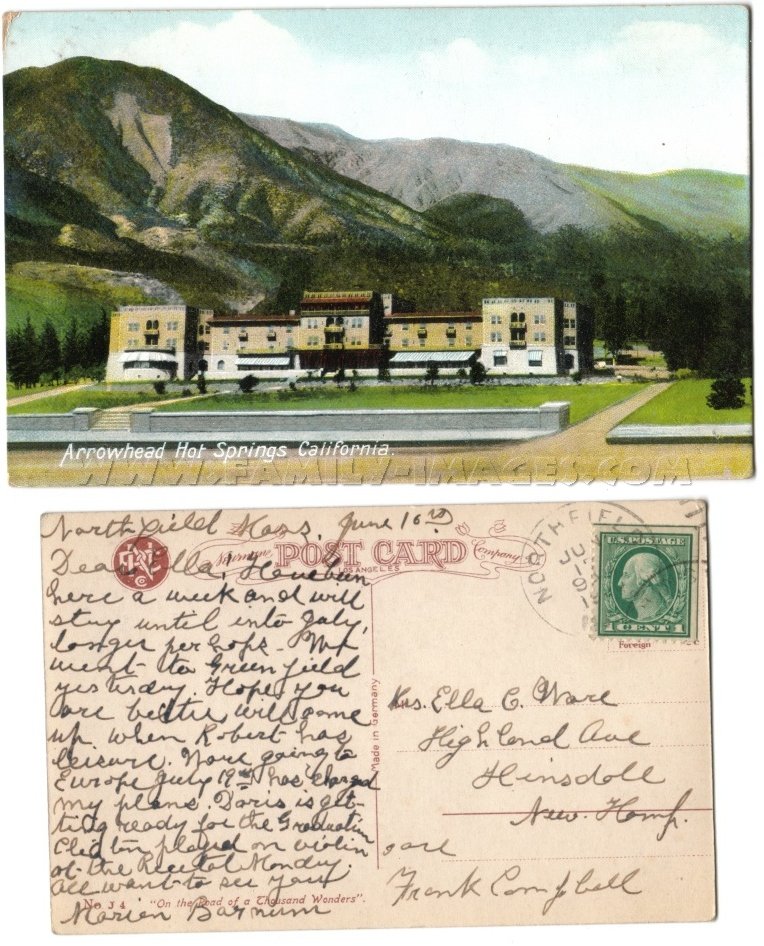 Arrowhead Hot Springs California.
WWW.FAMILY-IMAGES.COM
Northfield Mass, June 16
Dear Ella, Have been
here a week and will
stay until into July,
longer perhaps.
went to Greenfield
yesterday. Hope you
are better, will come
up when Robert has
leisure. going to
Europe July 19 has changed
my plans. Doris is get-
ting ready for the Graduation
Clifton played on violin
at the Recital Monday.
all want to see you
Marion Barnum
No J 4 "On the Road of a Thousand Wonders".
Newman POST CARD Company
LOS ANGELES
Made in Germany
NORTHFIELD
U.S. POSTAGE
1 CENT 1
Foreign
Mrs. Ella C. Ware
Highland Ave
Hinsdale
New Hamp.
care
Frank Campbell